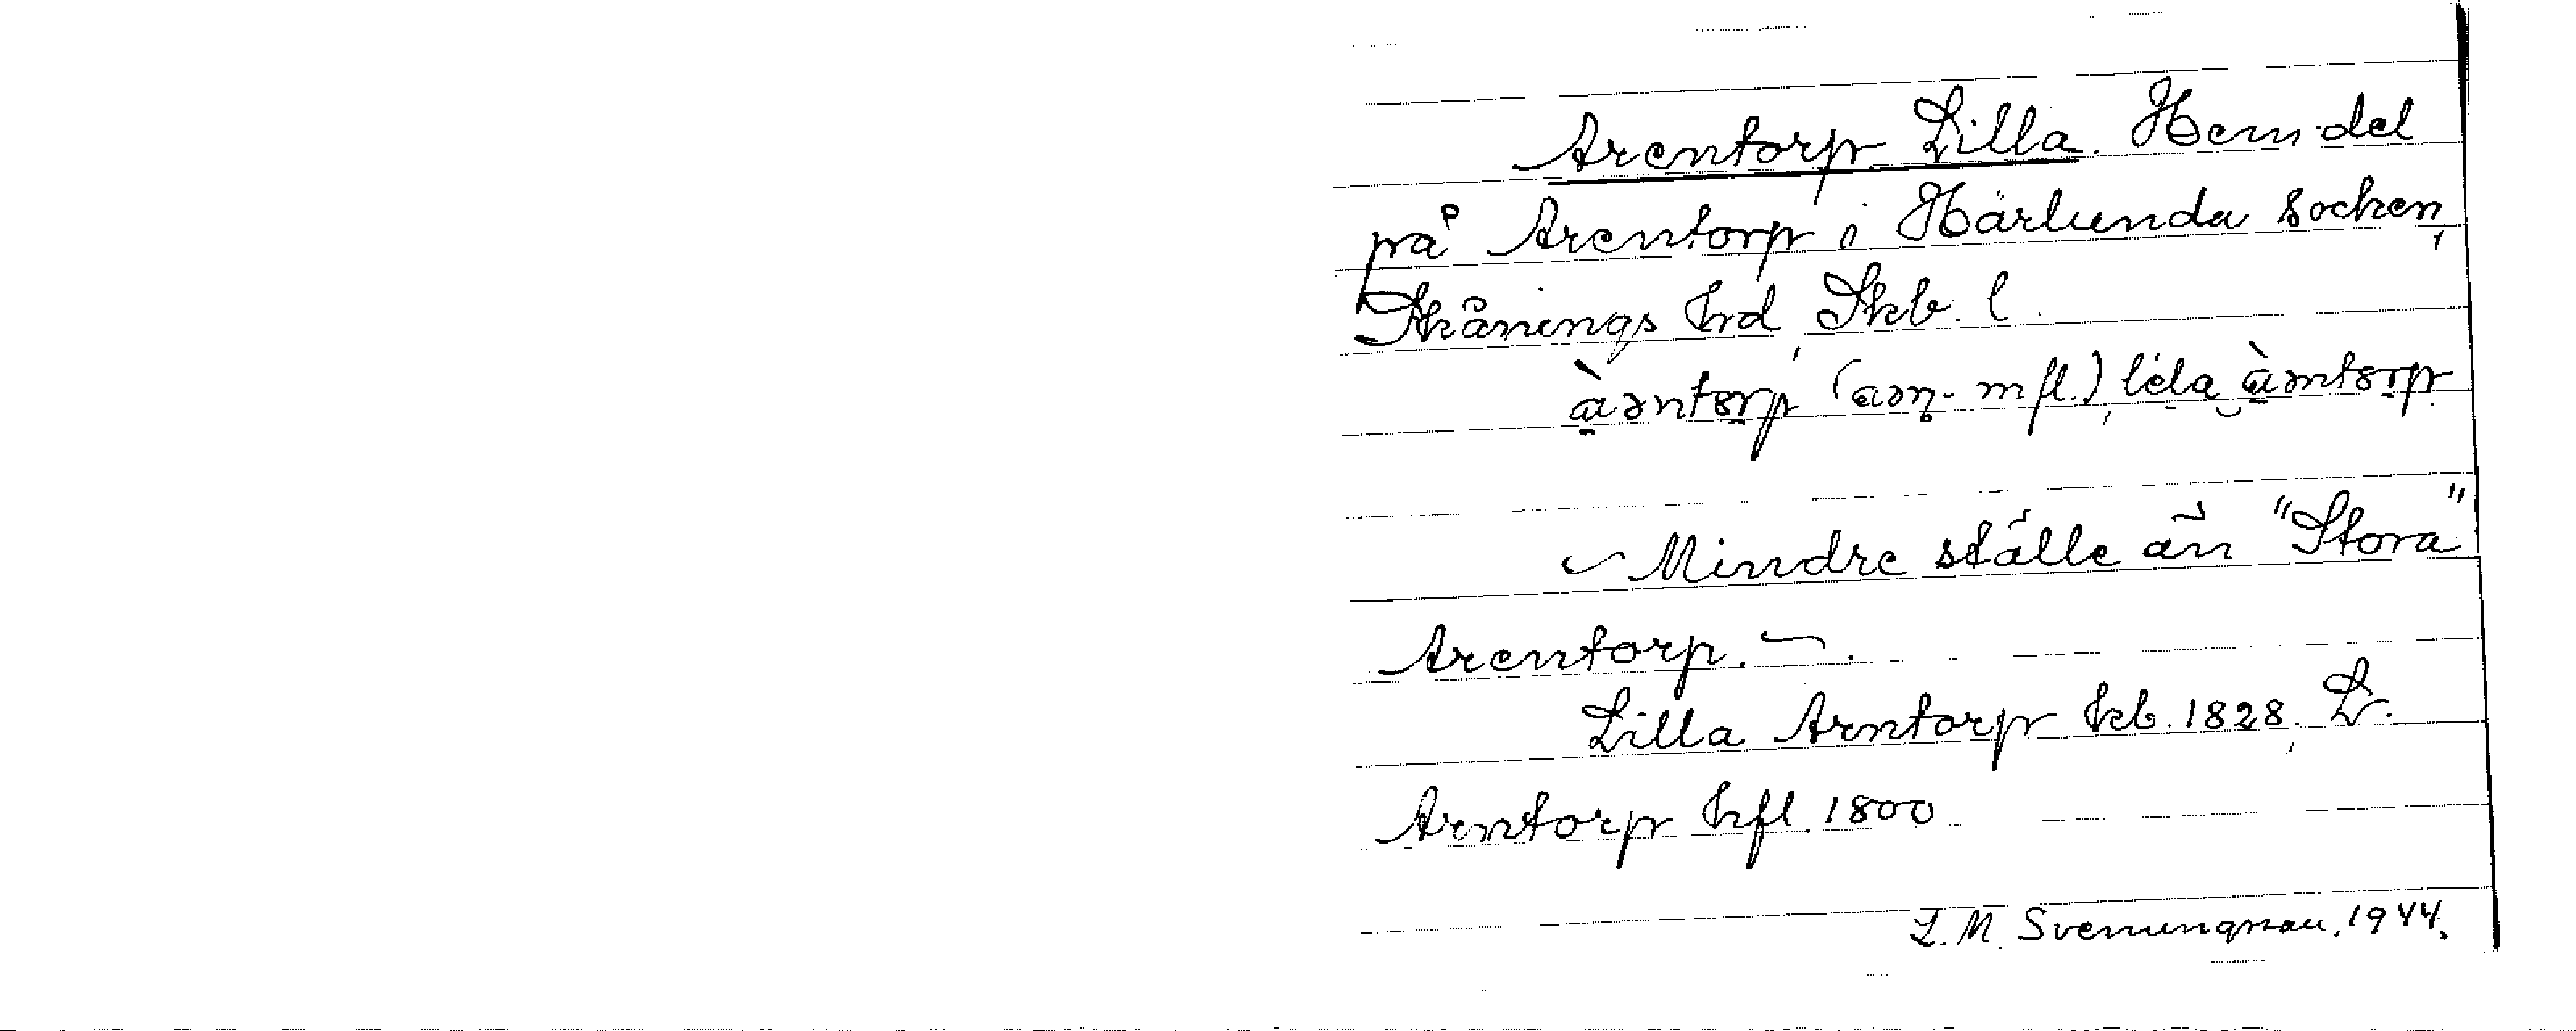 Arentorp Lilla. Hem. del
på Arentorp i Härlunda socken,
Skånings hrd, Skb. l.
àəntorp (aən- mfl.), lela àəntorp
Mindre ställe än "Stora"
Arentorp. —.
Lilla Arntorp hb. 1828, L.
Arntorp hfl 1800
L. M. Svenungsson. 1944.